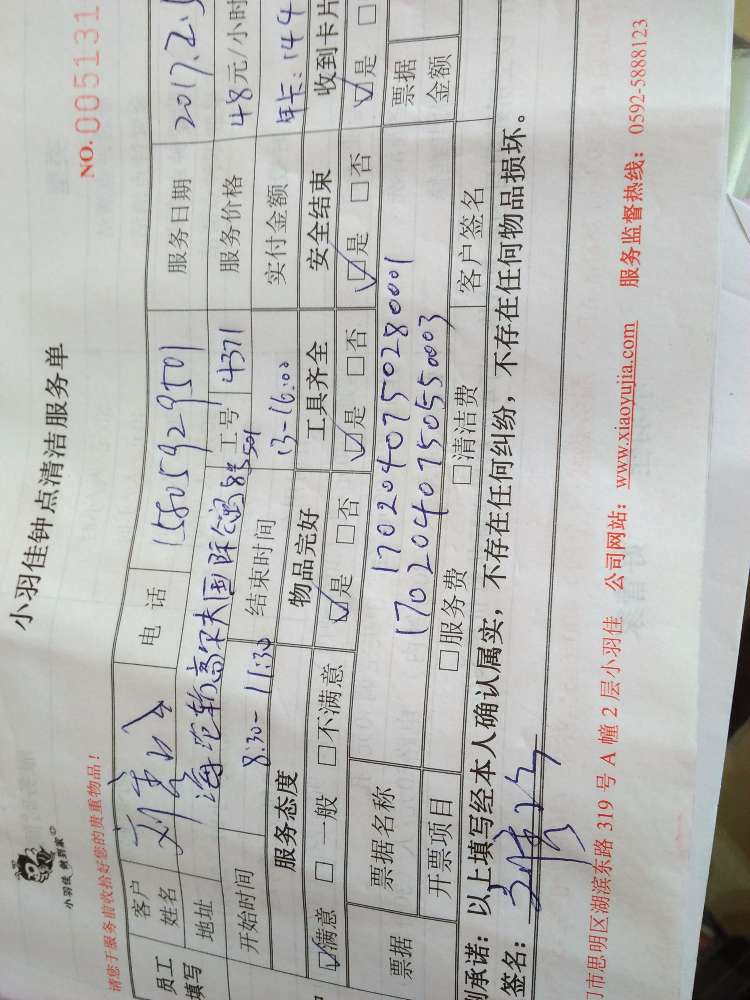 小羽佳钟点清洁服务单
小羽佳 做到家
请您于服务前收拾好您的贵重物品!
NO. 005131
员工填写
客户姓名
电 话 15805929501
服务日期 2017.2.
地址 海沧新高尔夫国际公寓
工号 4371
服务价格 48元/小时
开始时间 8:30-11:30
结束时间 13-16:00
实付金额 年卡:144
服务态度 物品完好 工具齐全 安全结束 收到卡片
☑满意 □一般 □不满意 ☑是 □否 ☑是 □否 ☑是 □否 ☑是 □
票据
票据名称 1702040750280001
1702040750550003
票据金额
开票项目 □服务费 □清洁费 客户签名
承诺:以上填写经本人确认属实,不存在任何纠纷,不存在任何物品损坏。
签名:
市思明区湖滨东路 319 号 A 幢 2 层小羽佳 公司网站:www.xiaoyujia.com 服务监督热线:0592-5888123